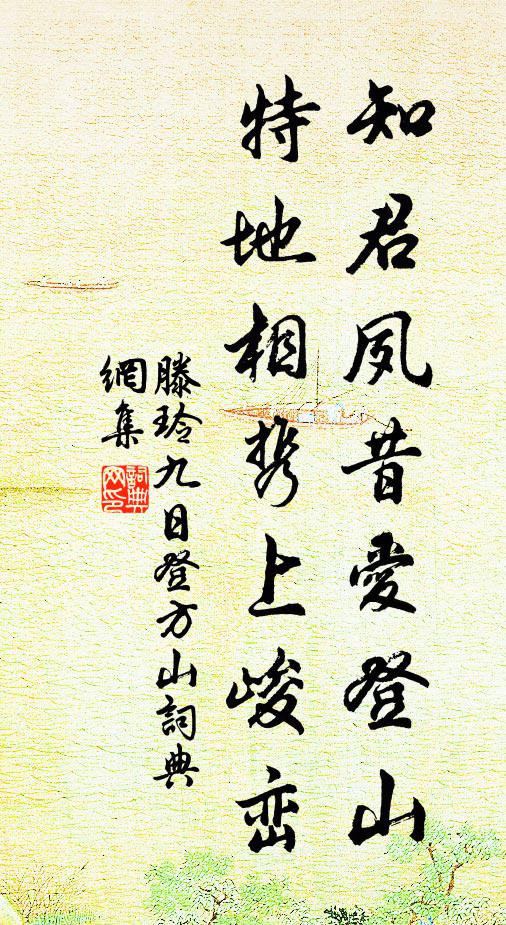 知君夙昔愛登山
特地相携上峻峦
滕玲九日登方山詞典
網集
詞典
网印